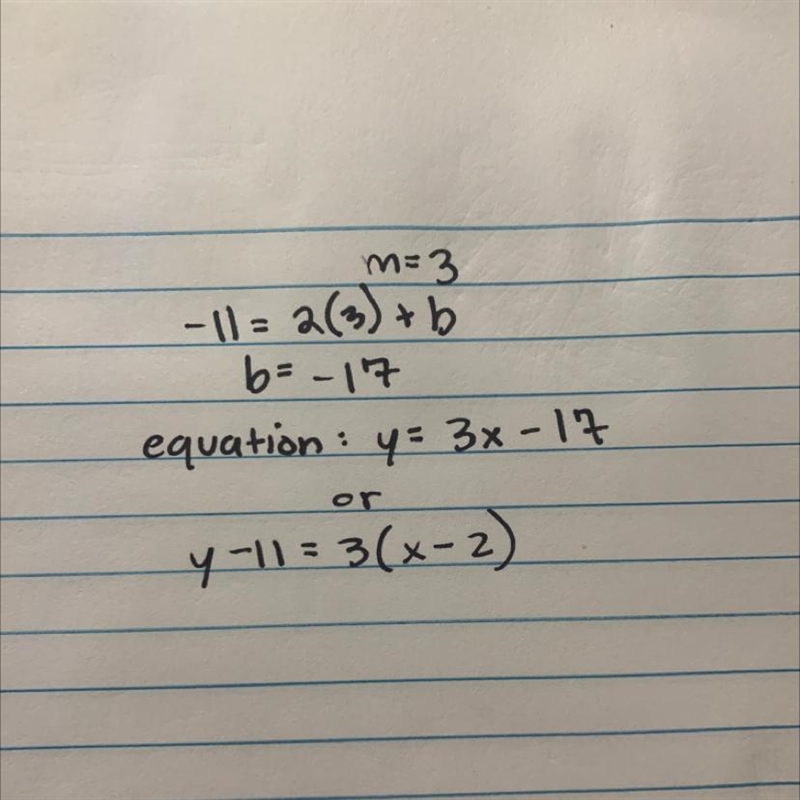 m=3
-11 = 2(3) + b
b= -17
equation: y= 3x - 17
or
y -11 = 3(x-2)